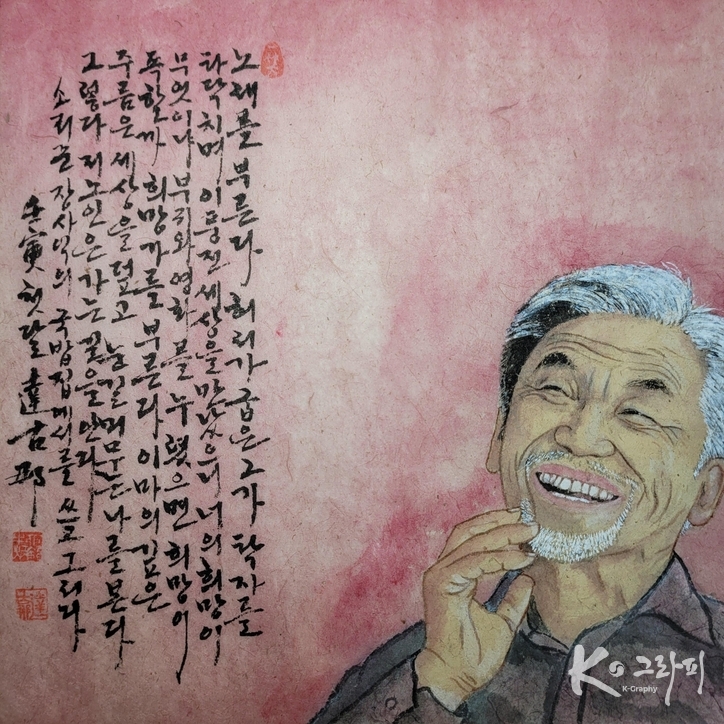 노래를 부른다 허리가 굽은 그가 탁자를
타닥치며 이 풍진 세상을 만났으니 너의 희망이
무엇이냐 부귀와 영화를 누렸으면 희망이
족할까 희망가를 부른다 이마의 깊은
주름은 세상을 덮고 눈길 머무는 나를 본다
그렇다 저 노인은 가는 길을 안다
소리꾼 장사익의 국밥집에서를 쓰고 그리다
壬寅 첫달 達古邨
K 그라피
K-Graphy